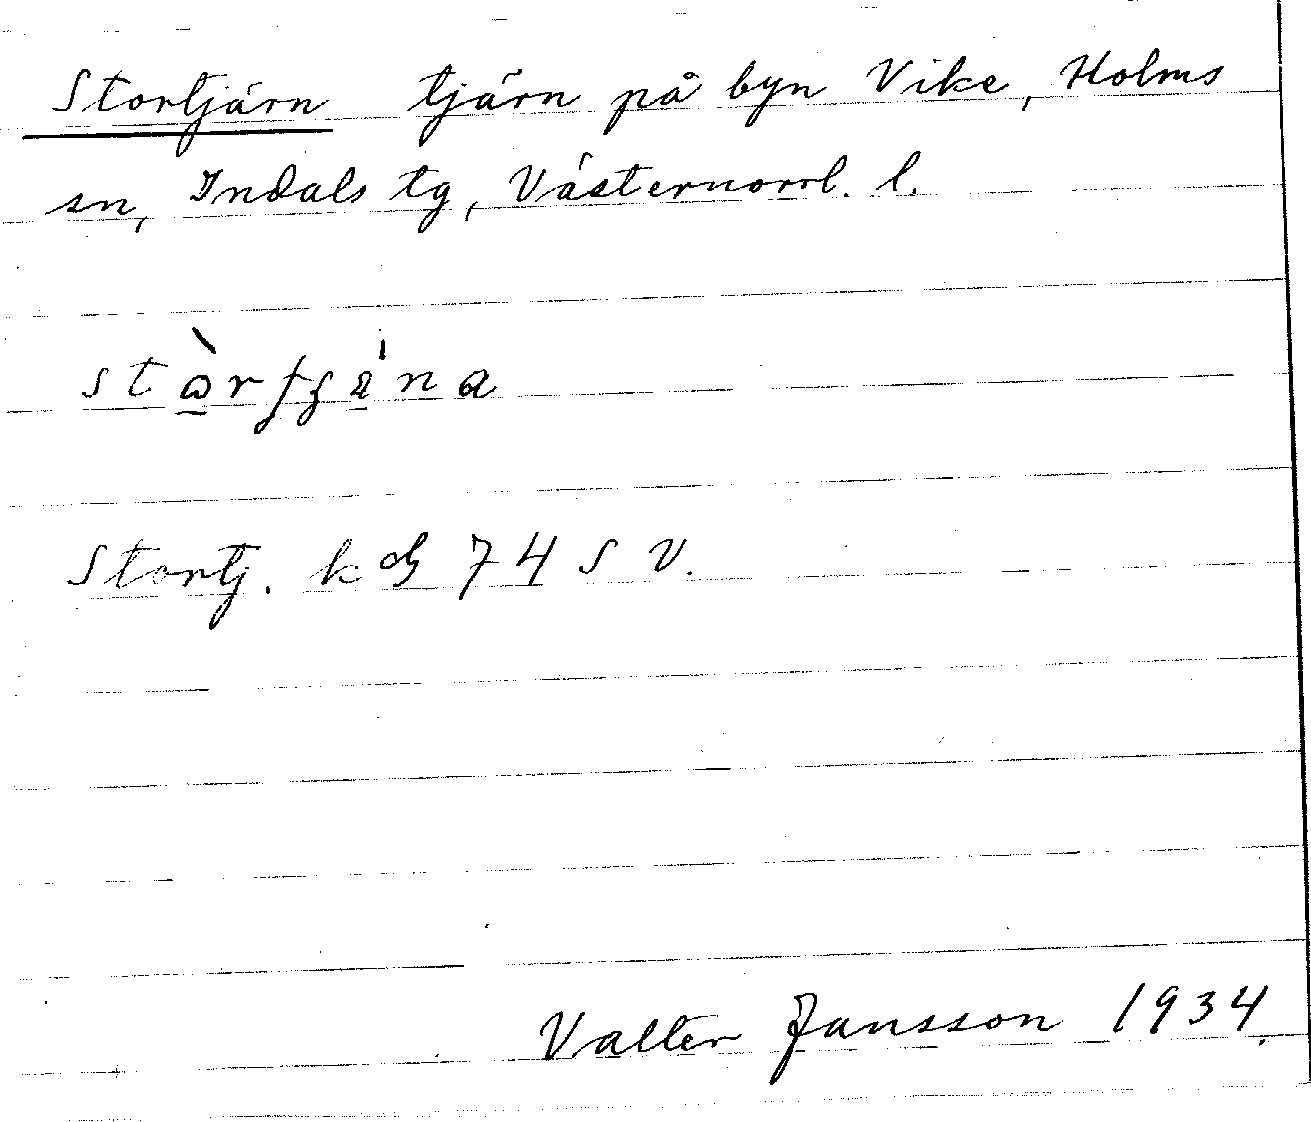 Stortjärn tjärn på byn Vike, Holms
sn, Indals tg, Västernorrl. l.
Stortj. k 74 S V.
Valter Jansson 1934.